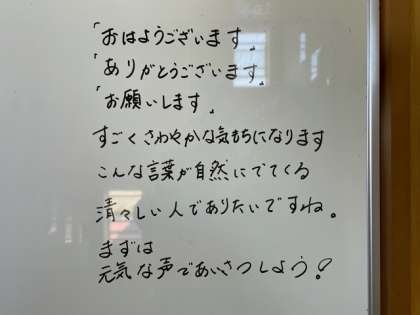 「おはようございます」
「ありがとうございます」
「お願いします」
すごくさわやかな気もちになります
こんな言葉が自然にでてくる
清々しい人でありたいですね。
まずは
元気な声であいさつしよう!